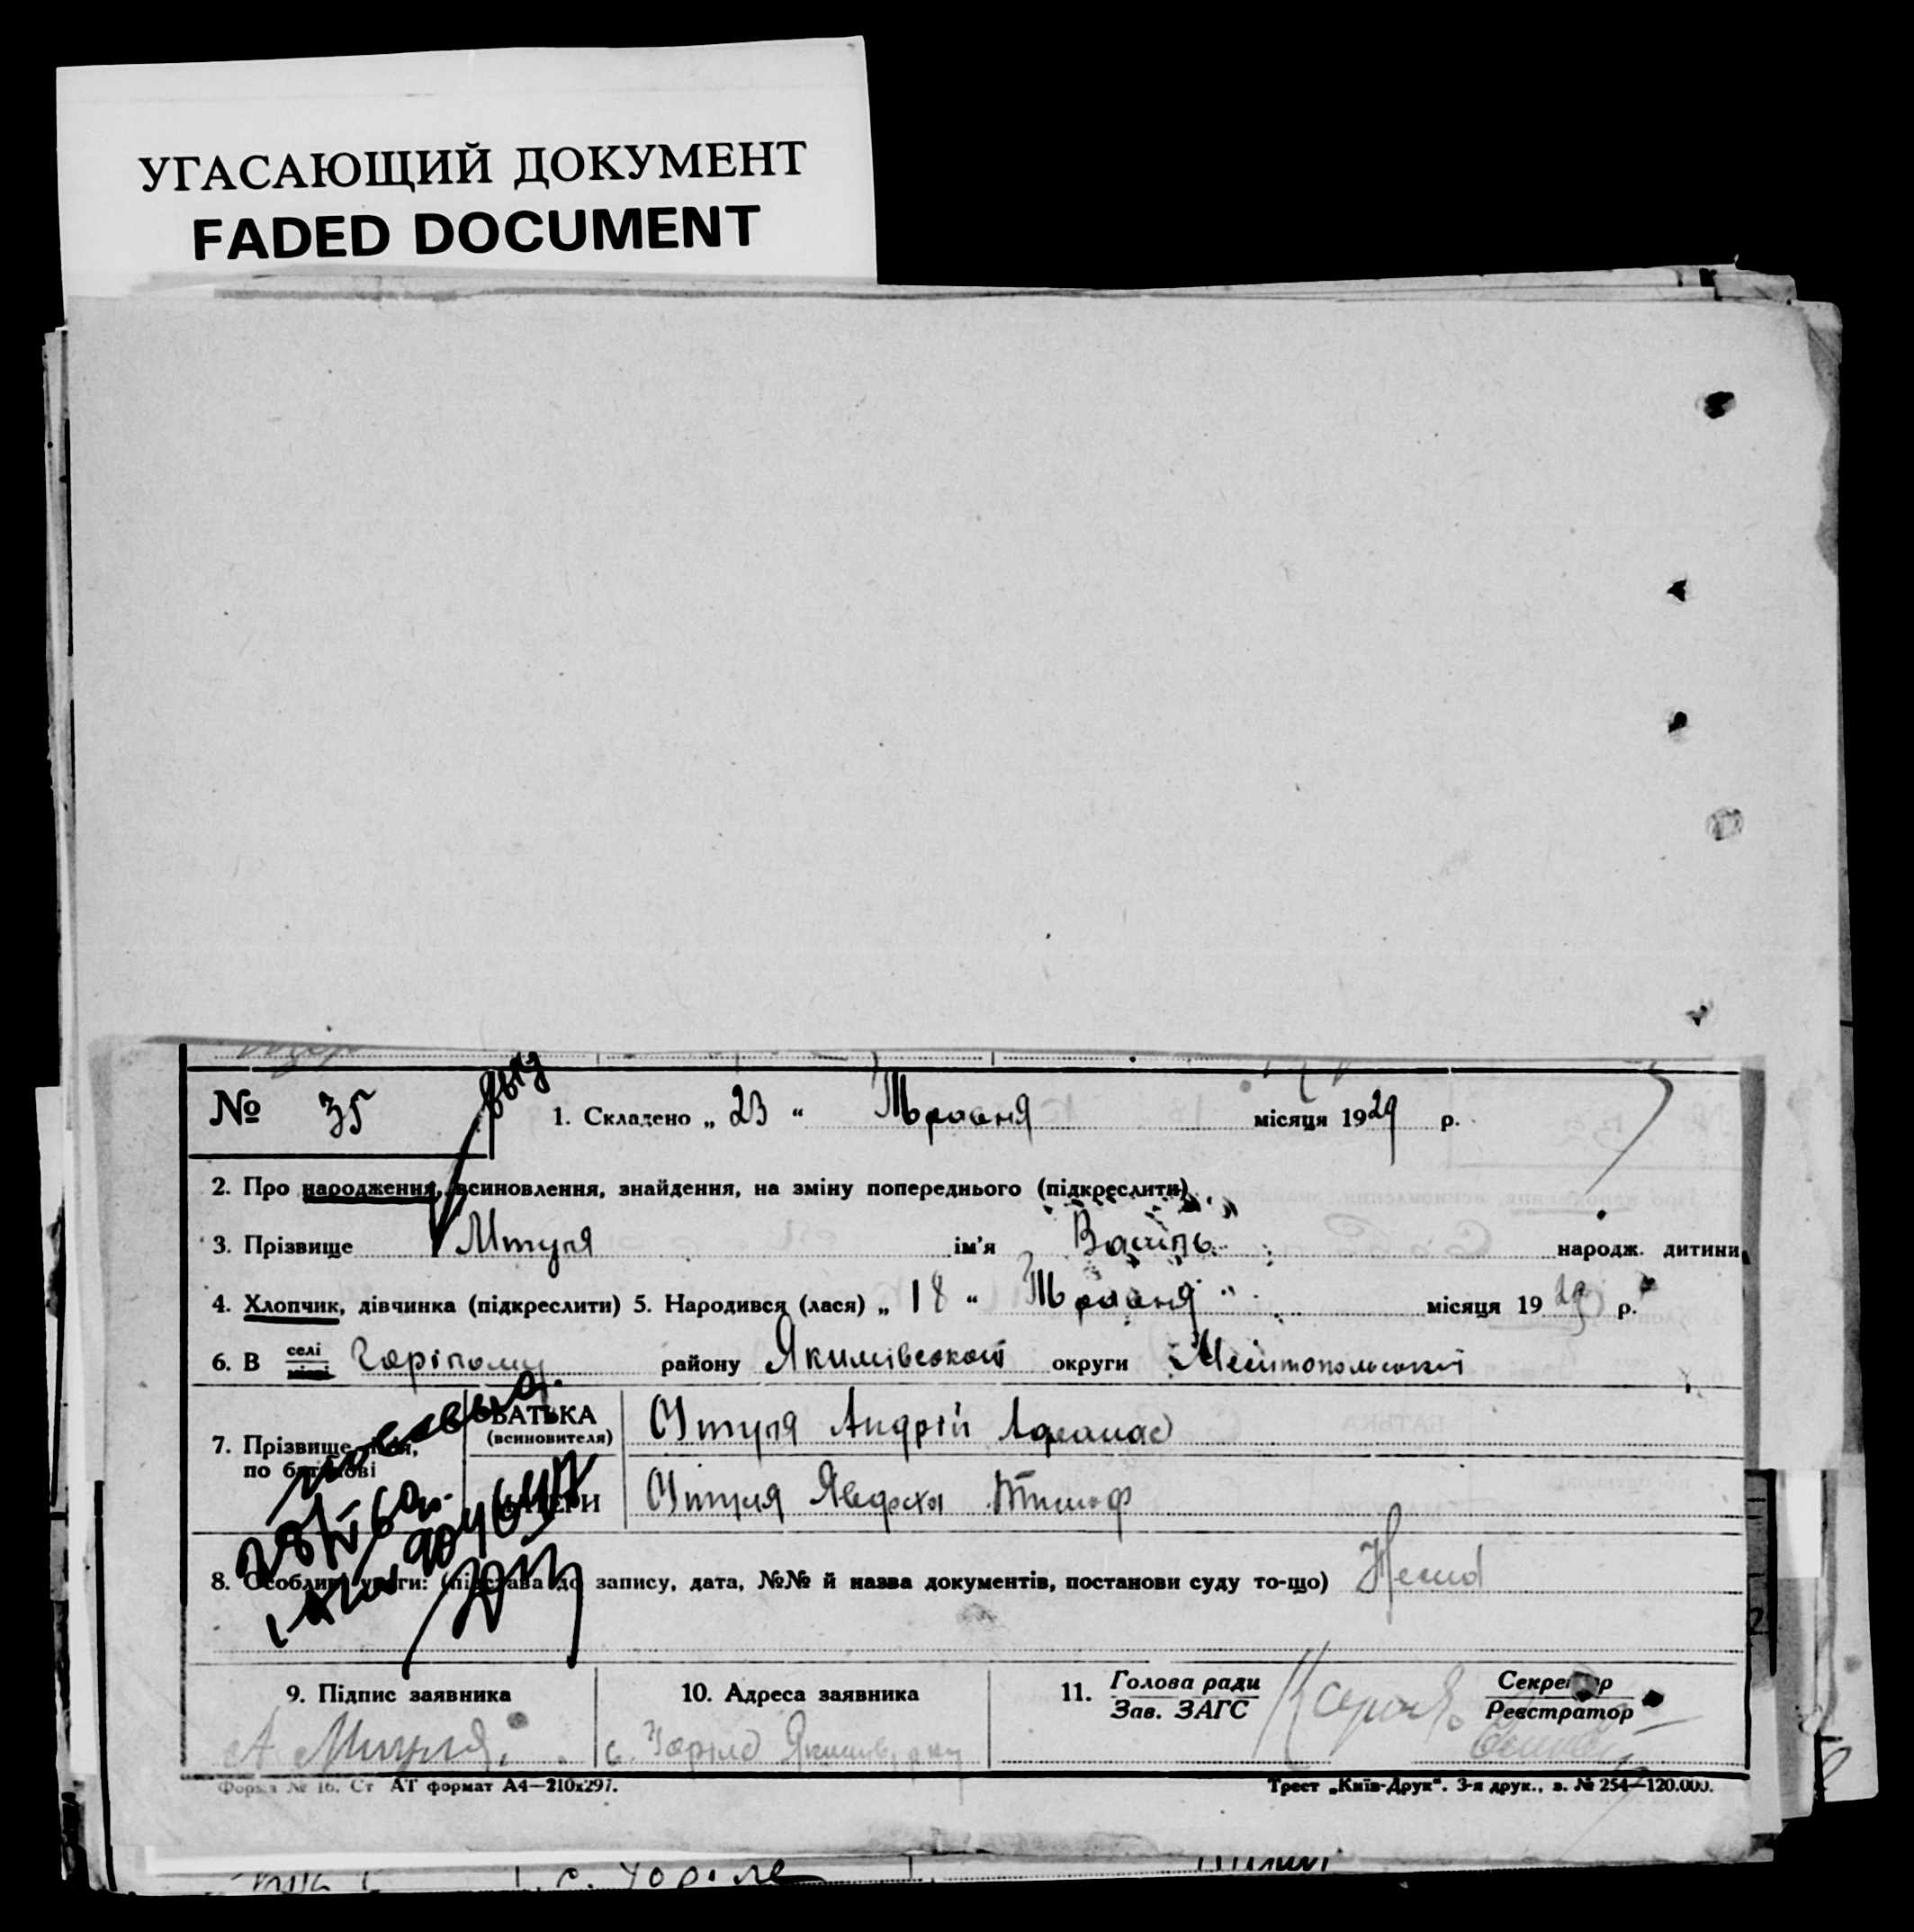 УГАСАЮЩИЙ ДОКУМЕНТ
FADED DOCUMENT
№ 35
1. Складено „ 23 “ Травня місяця 1929 р.
2. Про народження, всиновлення, знайдення, на зміну попереднього (підкреслити)
3. Прізвище Штуля ім'я Василь народж. дитини
4. Хлопчик, дівчинка (підкреслити) 5. Народився (лася) „ 18 “ Травня місяця 1929 р.
6. В селі Горілому району Якимівської округи Мелітопольської
7. Прізвище, ім'я, по батькові
БАТЬКА (всиновителя) Штуля Андрій Афанас
МАТЕРИ Штуля Явдоха Тимоф
8. Особливі уваги: (підстава до запису, дата, №№ й назва документів, постанови суду то-що) Нема
9. Підпис заявника
А Штуля
10. Адреса заявника
с. Горіле Якимів. рну
11. Голова ради
Зав. ЗАГС
Секретар
Реєстратор
Форма № 16. Ст АТ формат А4—210x297.
Трест „Київ-Друк“. 3-я друк., з. № 254—120.000.
с. Горіле